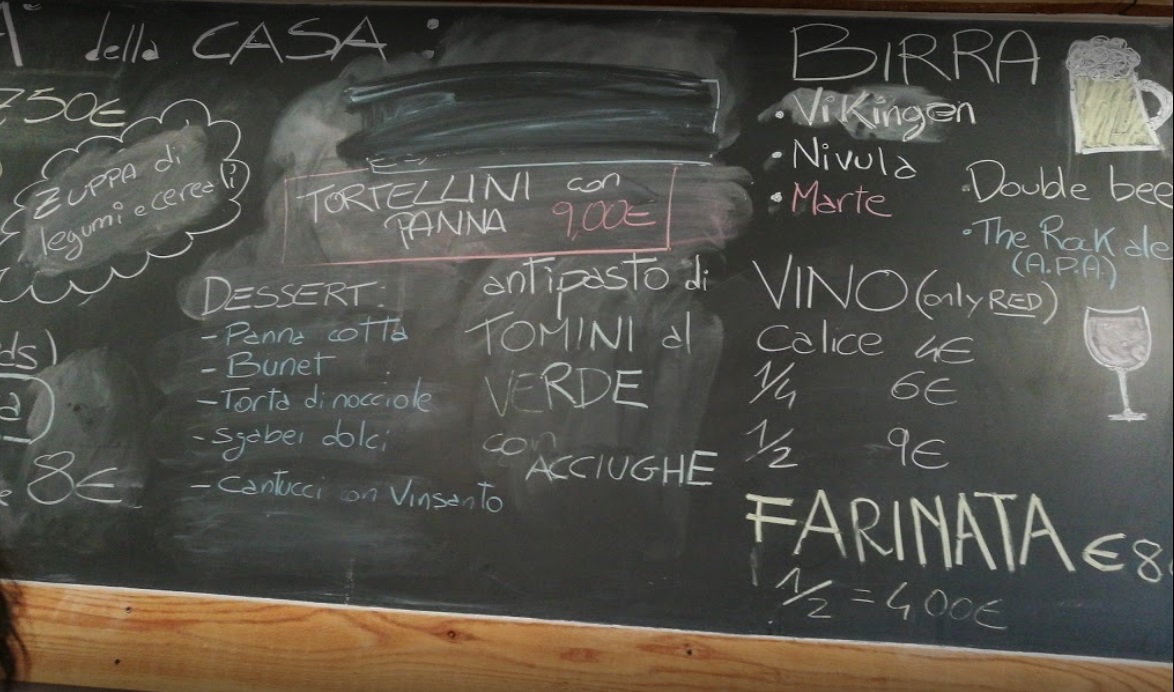 della CASA:
750€
ZUPPA di
legumi e cereali
ds)
a)
8€
TORTELLINI con
PANNA 9,00€
DESSERT:
- Panna cotta
- Bunet
- Torta di nocciole
- Sgabei dolci
- Cantucci con Vinsanto
antipasto di
TOMINI al
VERDE
con
ACCIUGHE
BIRRA
• ViKingen
• Nivula
• Marte
• Double bee
• The RocK ale
(A.P.A.)
VINO (only RED)
Calice 4€
1/4 6€
1/2 9€
FARINATA €8
1/2 = 4,00€